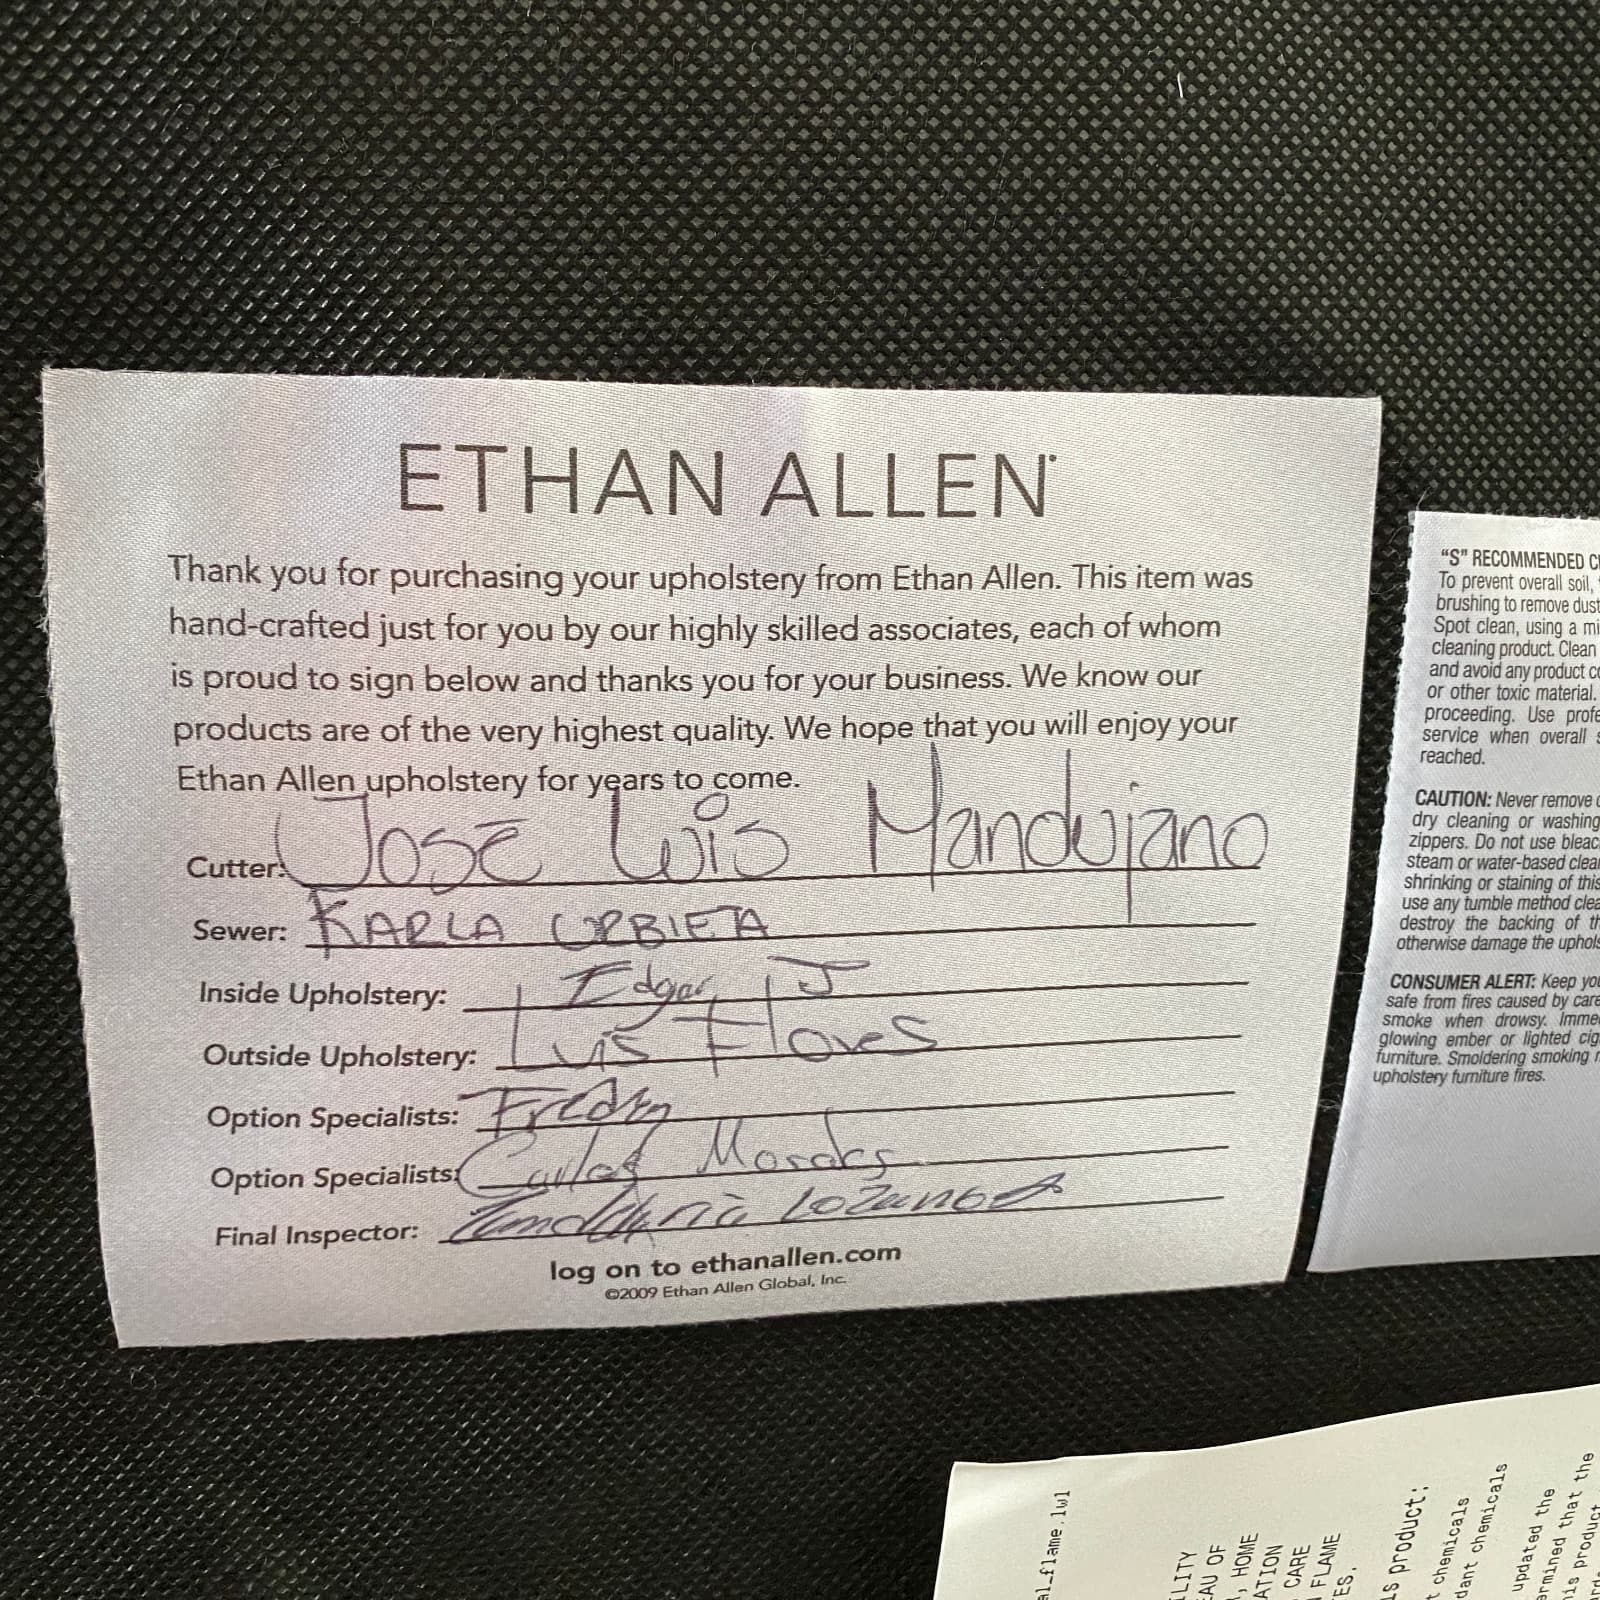 ETHAN ALLEN
Thank you for purchasing your upholstery from Ethan Allen. This item was
hand-crafted just for you by our highly skilled associates, each of whom
is proud to sign below and thanks you for your business. We know our
products are of the very highest quality. We hope that you will enjoy your
Ethan Allen upholstery for years to come.
Cutter: Jose Luis Mandujano
Sewer: KARLA URBIETA
Inside Upholstery: Edgar J
Outside Upholstery: Luis Flores
Option Specialists: Fredy
Option Specialists: Carlos Morales
Final Inspector: Lozano
log on to ethanallen.com
©2009 Ethan Allen Global, Inc.
"S" RECOMMENDED
To prevent overall soil,
brushing to remove dust
Spot clean, using a
cleaning product. Clean
and avoid any product
or other toxic material.
proceeding. Use
service when overall
reached.
CAUTION: Never remove
dry cleaning or washing
zippers. Do not use
steam or water-based
shrinking or staining of this
use any tumble method
destroy the backing of
otherwise damage the
CONSUMER ALERT: Keep
safe from fires caused by
smoke when drowsy.
glowing ember or lighted
furniture. Smoldering smoking
upholstery furniture fires.
al_flame.lwl
LITY
EAU OF
, HOME
ATION
CARE
FLAME
ES.
is product:
t chemicals
dant chemicals
updated the
ermined that the
his product